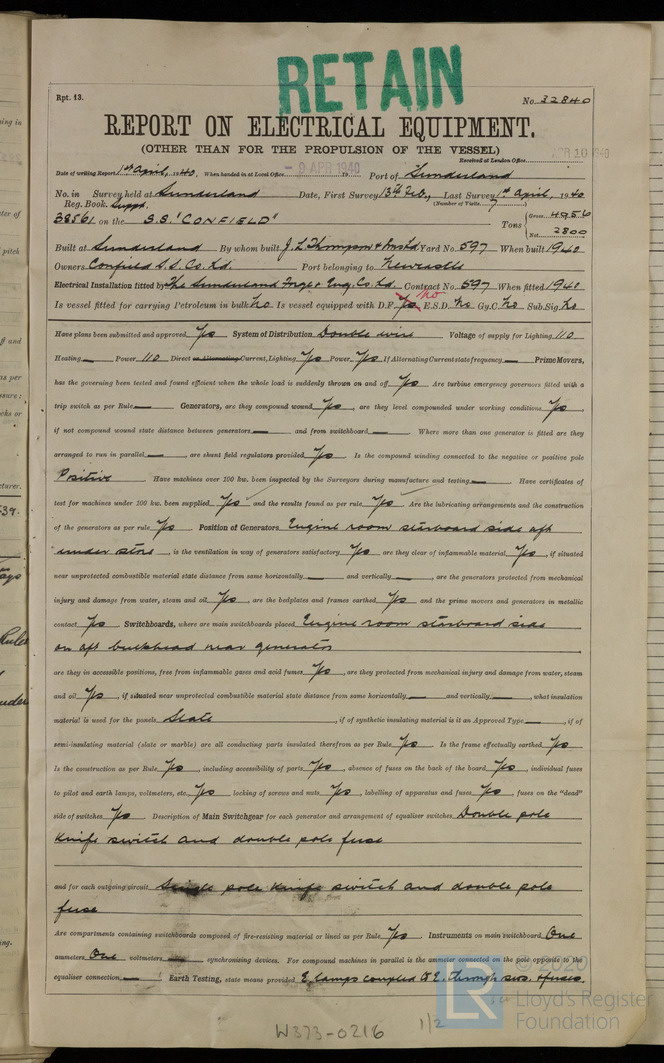 RETAIN
Rpt. 13.
No. 32840
REPORT ON ELECTRICAL EQUIPMENT.
(OTHER THAN FOR THE PROPULSION OF THE VESSEL)
Received at London Office APR 10 1940
Date of writing Report 1st April, 1940, When handed in at Local Office - 9 APR 1940 19 Port of Sunderland
No. in Survey held at Sunderland Date, First Survey 13th Feb., Last Survey 1st April, 1940
Reg. Book. Suppt. (Number of Visits 7)
38561 on the S.S. "CONFIELD" Tons { Gross 4956
Net 2800
Built at Sunderland By whom built J. L. Thompson & Sons Ld Yard No. 597 When built 1940
Owners Confield S.S. Co. Ld. Port belonging to Newcastle
Electrical Installation fitted by The Sunderland Forge & Eng. Co. Ld. Contract No. 597 When fitted 1940
Is vessel fitted for carrying Petroleum in bulk No. Is vessel equipped with D.F. Yes No E.S.D. No Gy.C. No Sub.Sig. No
Have plans been submitted and approved Yes System of Distribution Double wire Voltage of supply for Lighting 110
Heating — Power 110 Direct or Alternating Current, Lighting Yes Power Yes If Alternating Current state frequency — Prime Movers,
has the governing been tested and found efficient when the whole load is suddenly thrown on and off Yes Are turbine emergency governors fitted with a
trip switch as per Rule — Generators, are they compound wound Yes, are they level compounded under working conditions Yes,
if not compound wound state distance between generators — and from switchboard — Where more than one generator is fitted are they
arranged to run in parallel —, are shunt field regulators provided Yes Is the compound winding connected to the negative or positive pole
Positive Have machines over 100 kw. been inspected by the Surveyors during manufacture and testing — Have certificates of
test for machines under 100 kw. been supplied Yes and the results found as per rule Yes Are the lubricating arrangements and the construction
of the generators as per rule Yes Position of Generators Engine room starboard side aft
under store, is the ventilation in way of generators satisfactory Yes are they clear of inflammable material Yes, if situated
near unprotected combustible material state distance from same horizontally — and vertically —, are the generators protected from mechanical
injury and damage from water, steam and oil Yes, are the bedplates and frames earthed Yes and the prime movers and generators in metallic
contact Yes Switchboards, where are main switchboards placed Engine room starboard side
on aft bulkhead near generator
are they in accessible positions, free from inflammable gases and acid fumes Yes, are they protected from mechanical injury and damage from water, steam
and oil Yes, if situated near unprotected combustible material state distance from same horizontally — and vertically —, what insulation
material is used for the panels Slate, if of synthetic insulating material is it an Approved Type —, if of
semi-insulating material (slate or marble) are all conducting parts insulated therefrom as per Rule Yes Is the frame effectually earthed Yes
Is the construction as per Rule Yes, including accessibility of parts Yes, absence of fuses on the back of the board Yes, individual fuses
to pilot and earth lamps, voltmeters, etc. Yes locking of screws and nuts Yes, labelling of apparatus and fuses Yes, fuses on the "dead"
side of switches Yes Description of Main Switchgear for each generator and arrangement of equaliser switches Double pole
knife switch and double pole fuse
and for each outgoing circuit Single pole knife switch and double pole
fuse
Are compartments containing switchboards composed of fire-resisting material or lined as per Rule Yes Instruments on main switchboard One
ammeters One voltmeters — synchronising devices. For compound machines in parallel is the ammeter connected on the pole opposite to the
equaliser connection — Earth Testing, state means provided E. lamps coupled to E. through sws. & fuses
W373-0216
1/2
© 2020
LR
Lloyd's Register
Foundation